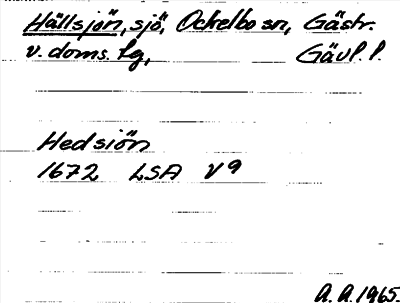 Hällsjön, sjö, Ockelbo sn, Gästr.
v. doms. lg, Gävl. l.
Hedsiön
1672 LSA V9
A.A. 1965.